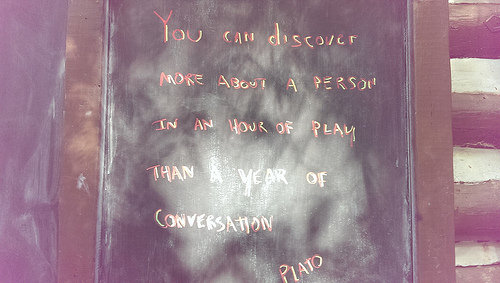 You can discover
MORE ABOUT A PERSON
IN AN HOUR OF PLAY
THAN A YEAR OF
CONVERSATION
PLATO